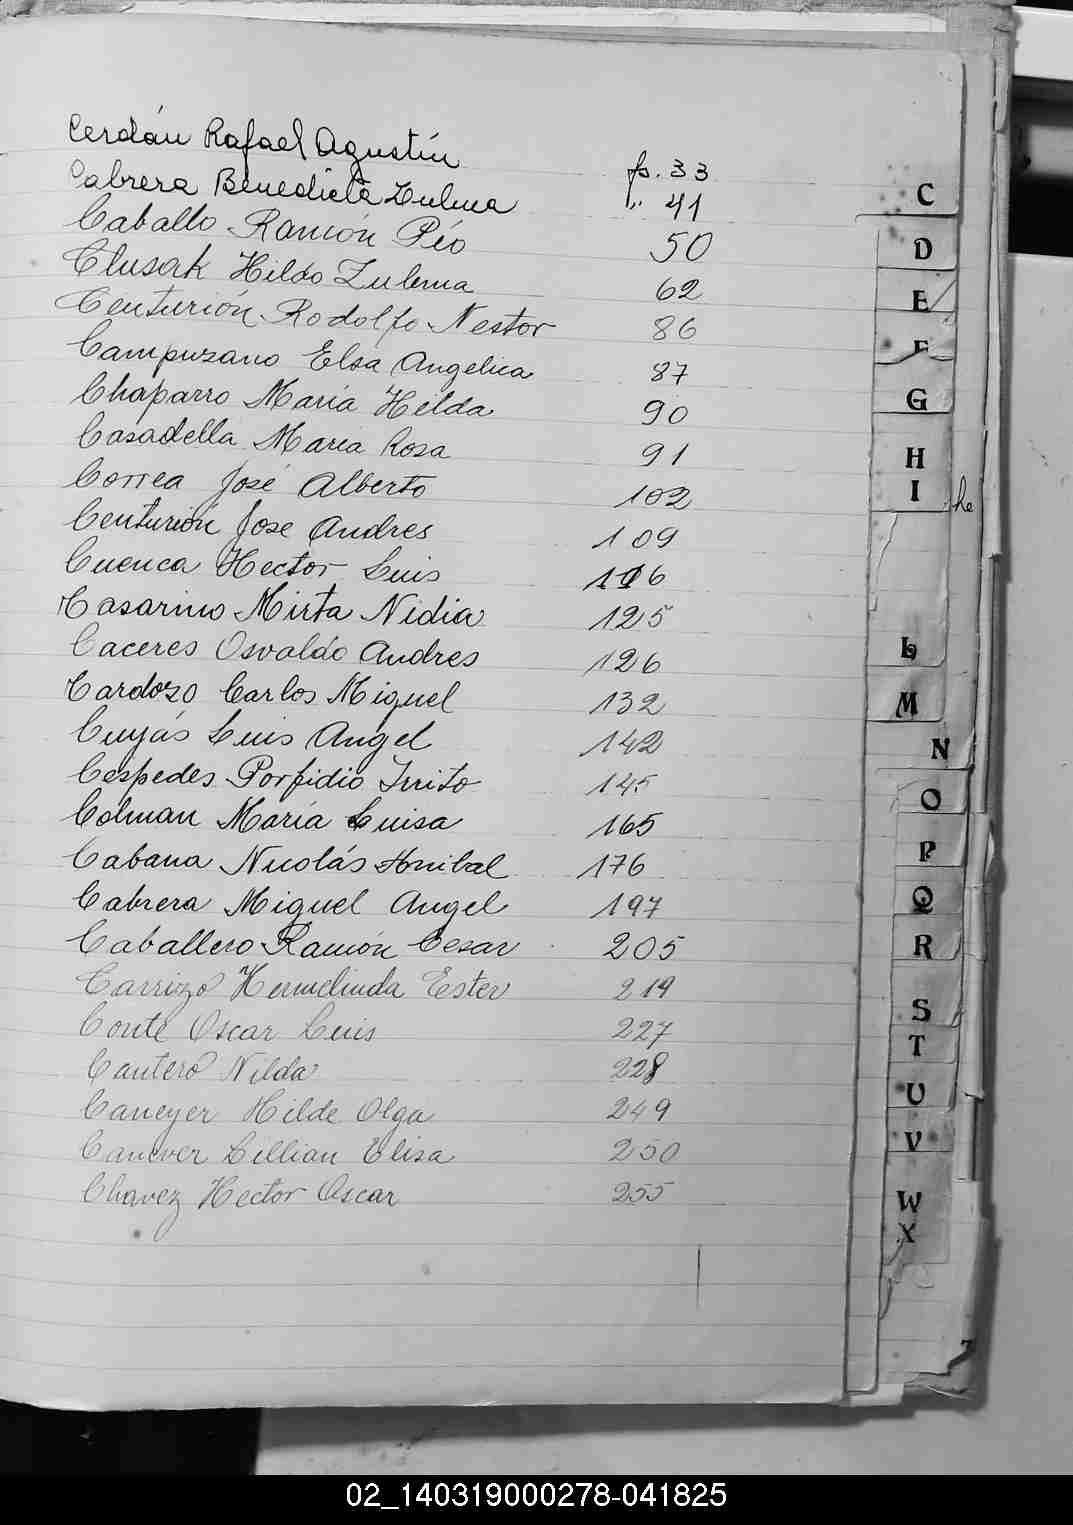 Cerdán Rafael Agustín fs. 33
Cabrera Benedicta Zulma ,, 41
Caballo Ramón Pío 50
Clusak Hildo Zulema 62
Centurión Rodolfo Nestor 86
Campuzano Elsa Angelica 87
Chaparro María Hilda 90
Casadella María Rosa 91
Correa José Alberto 102
Centurión Jose Andres 109
Cuenca Hector Luis 116
Casarino Mirta Nidia 125
Caceres Osvaldo Andres 126
Cardozo Carlos Miguel 132
Cuyás Luis Angel 142
Cespedes Porfidio 145
Colman María Luisa 165
Cabana Nicolás Anibal 176
Cabrera Miguel Angel 197
Caballero Ramón Cesar 205
Carrizo Hermelinda Ester 219
Conte Oscar Luis 227
Cantero Nilda 228
Caneyer Hilde Olga 249
Lillian Elisa 250
Chavez Hector Oscar 255
C
D
E
F
G
H
I
he
L
M
N
O
P
Q
R
S
T
U
V
W
X
02_140319000278-041825